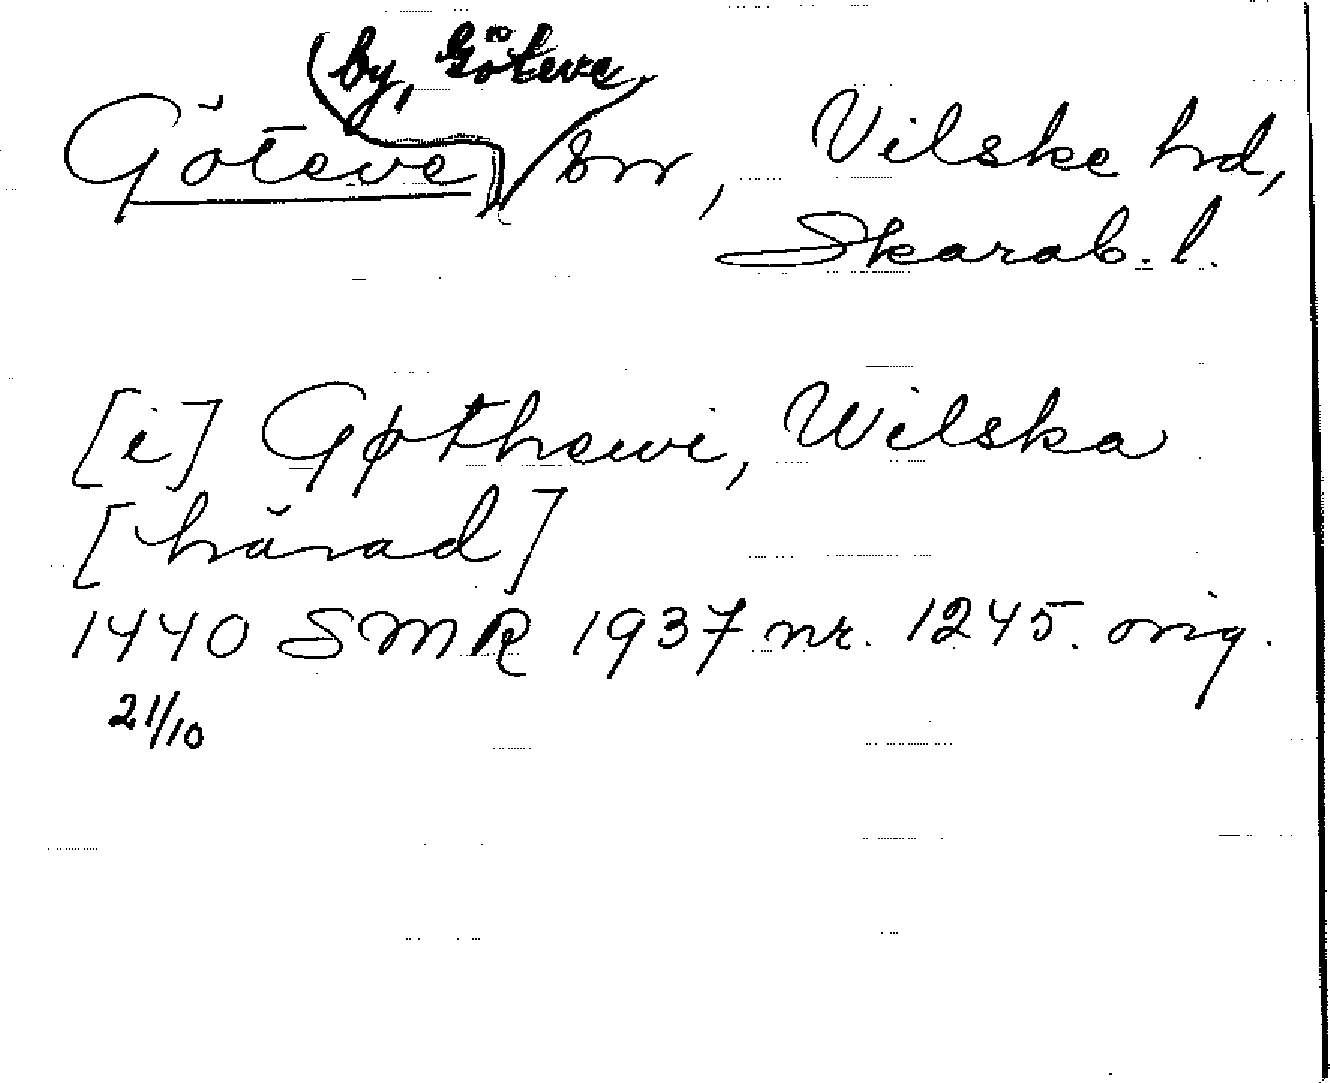 by, Göteve
Göteve sn, Vilske hd,
Skarab. l.
[i] Gøthewi, Wilska
[härad]
1440 SMR 1937 nr. 1245. orig.
21/10